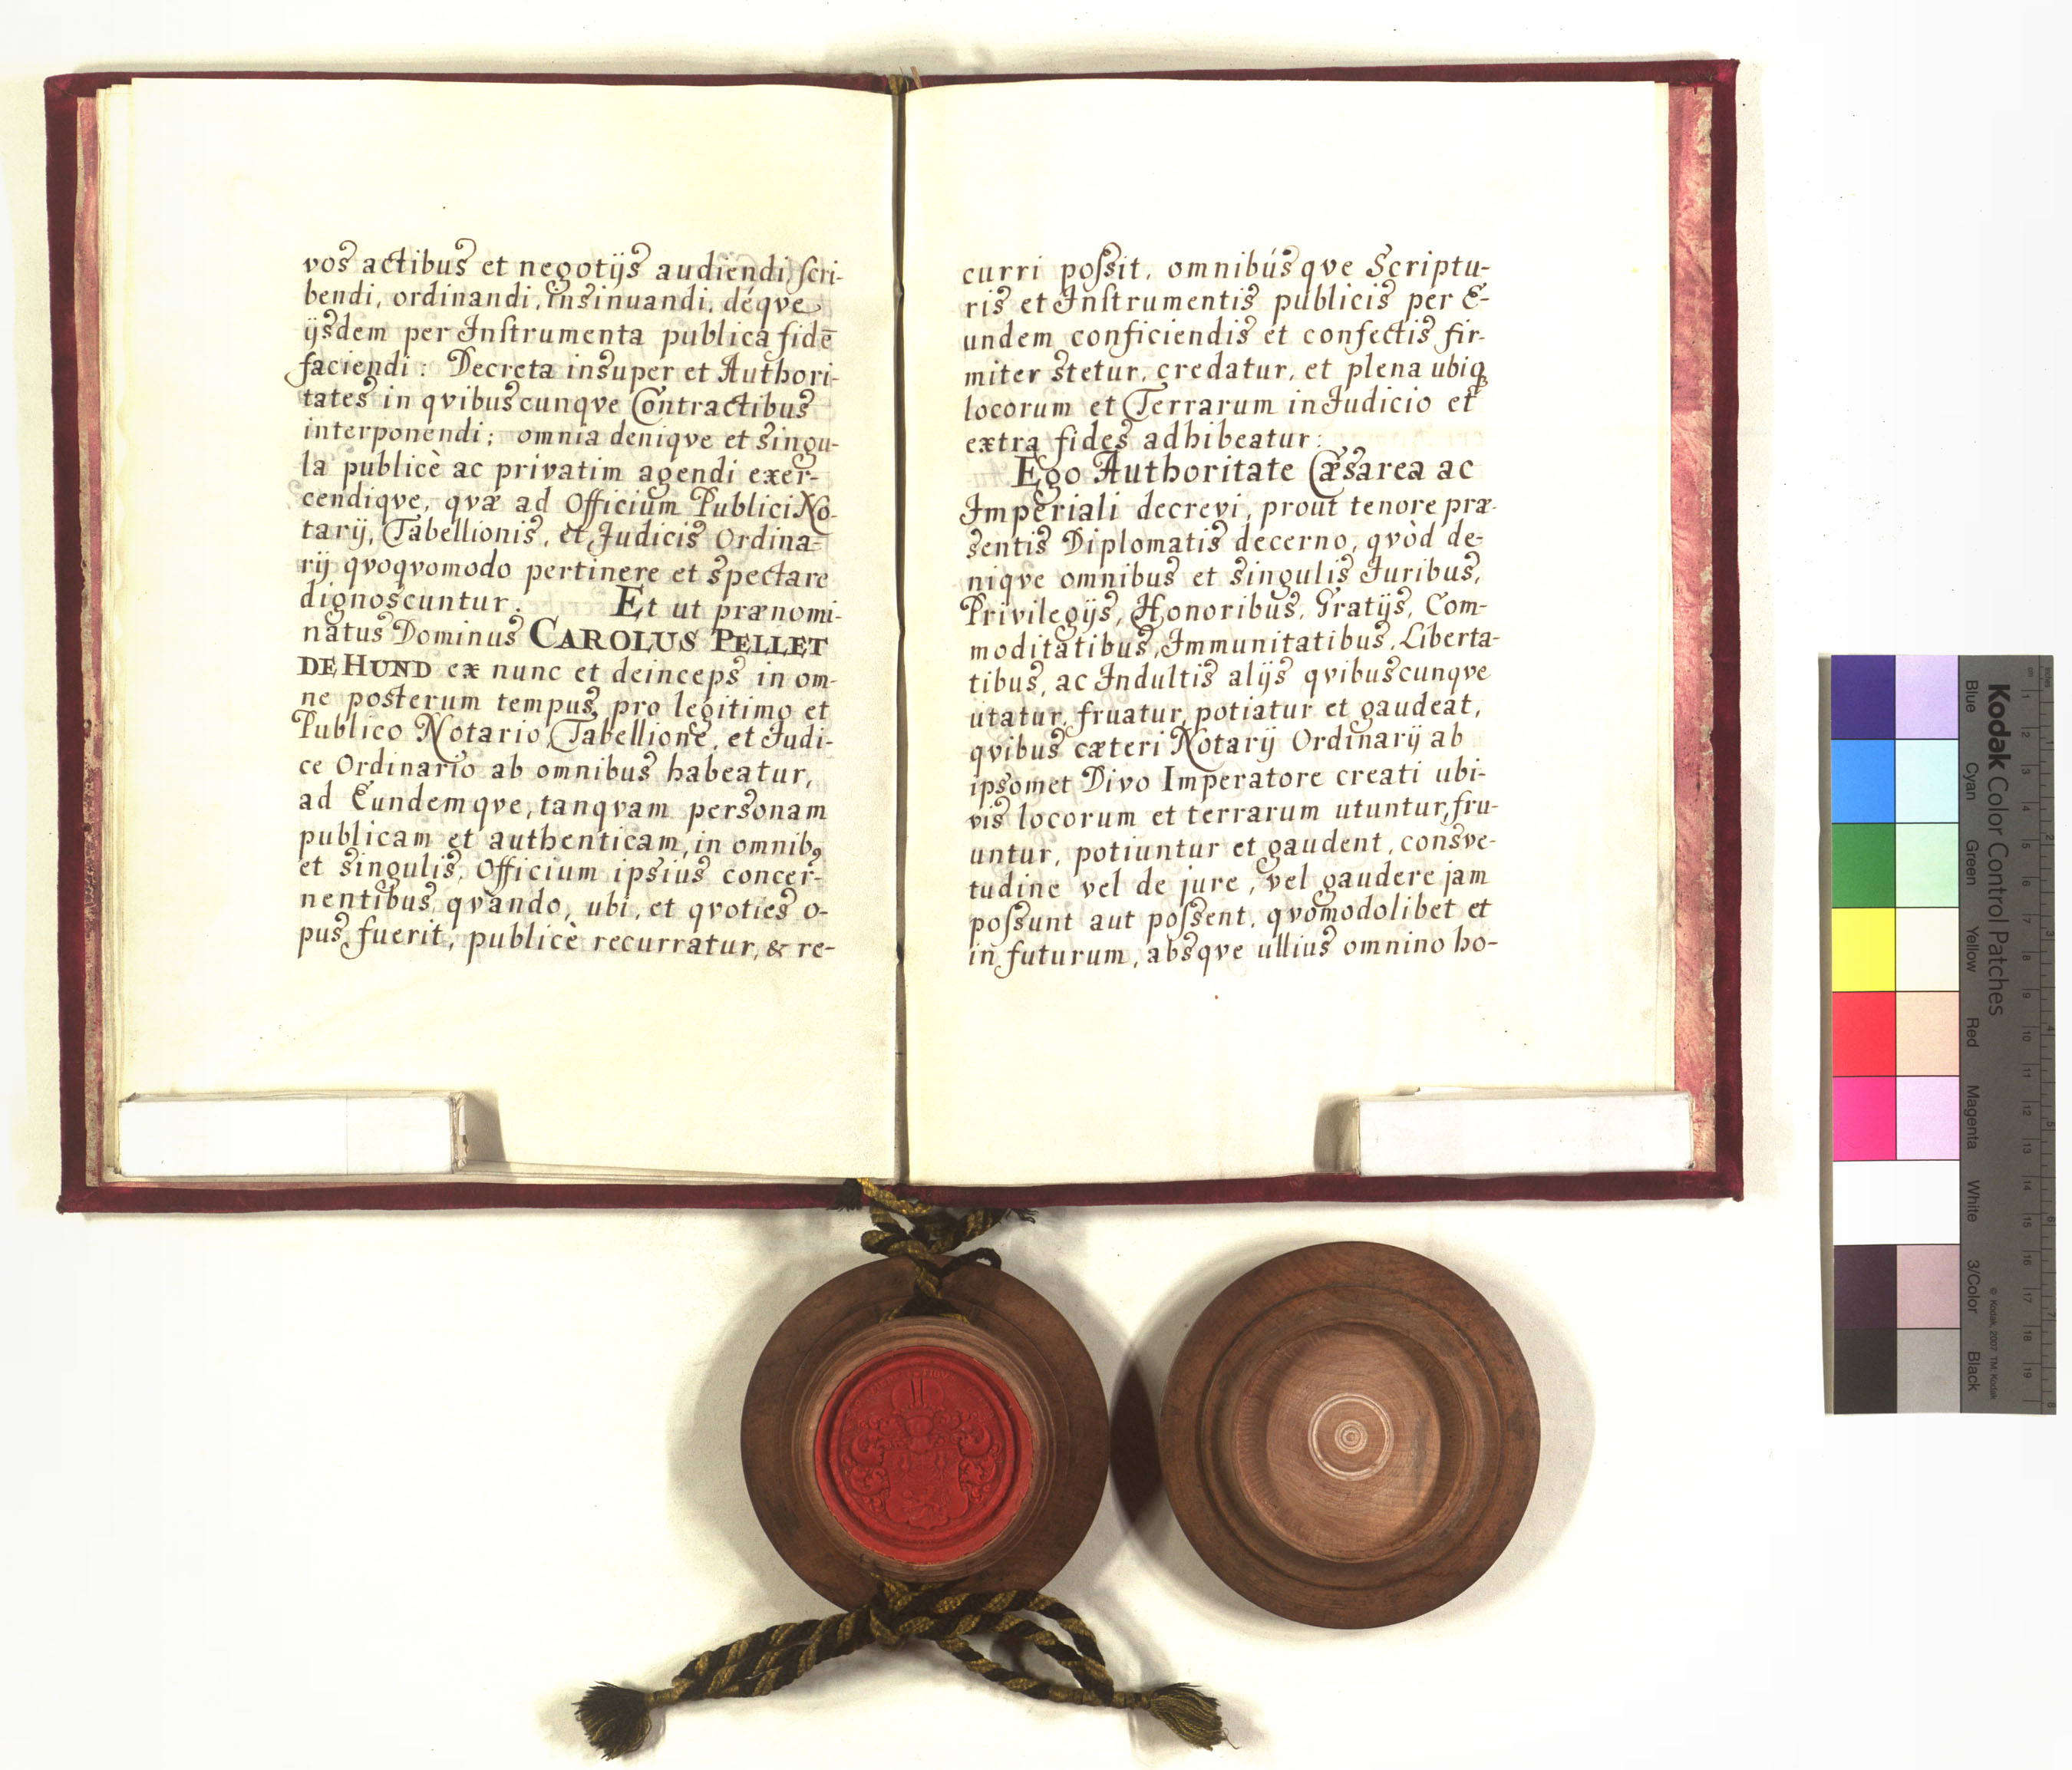 vos actibus et negotijs audiendi, scri-
bendi, ordinandi, insinuandi, déqve
ijsdem per Instrumenta publica fidē
faciendi: Decreta insuper et Authori-
tates in qvibuscunqve Contractibus
interponendi; omnia deniqve et singu-
la publicè ac privatim agendi exer-
cendiqve, qvæ ad Officium Publici No-
tarij, Tabellionis, et Judicis Ordina-
rij qvoqvomodo pertinere et spectare
dignoscuntur. Et ut prænomi-
natus Dominus CAROLUS PELLET
DE HUND ex nunc et deinceps in om-
ne posterum tempus, pro legitimo et
Publico Notario, Tabellione, et Judi-
ce Ordinario ab omnibus habeatur,
ad Eundemqve, tanqvam personam
publicam et authenticam, in omnibꝰ
et singulis, Officium ipsius concer-
nentibus, qvando, ubi, et qvoties o-
pus fuerit, publicè recurratur, & re-
curri possit, omnibúsqve Scriptu-
ris et Instrumentis publicis per E-
undem conficiendis et confectis fir-
miter stetur, credatur, et plena ubiqꝫ
locorum et Terrarum in Judicio et
extra fides adhibeatur:
Ego Authoritate Cæsarea ac
Imperiali decrevi, prout tenore præ-
sentis Diplomatis decerno, qvòd de-
niqve omnibus et singulis Juribus,
Privilegijs, Honoribus, Gratijs, Com-
moditatibus, Immunitatibus, Liberta-
tibus, ac Indultis alijs qvibuscunqve
utatur, fruatur, potiatur et gaudeat,
qvibus cæteri Notarij Ordinarij ab
ipsomet Divo Imperatore creati ubi-
vis locorum et terrarum utuntur, fru-
untur, potiuntur et gaudent, consve-
tudine vel de jure, vel gaudere jam
possunt aut possent, qvomodolibet et
in futurum, absqve ullius omnino ho-
Kodak Color Control Patches
Blue Cyan Green Yellow Red Magenta White 3/Color Black
© Kodak, 2007 TM: Kodak
cm 1 2 3 4 5 6 7 8 9 10 11 12 13 14 15 16 17 18 19
inches 1 2 3 4 5 6 7 8